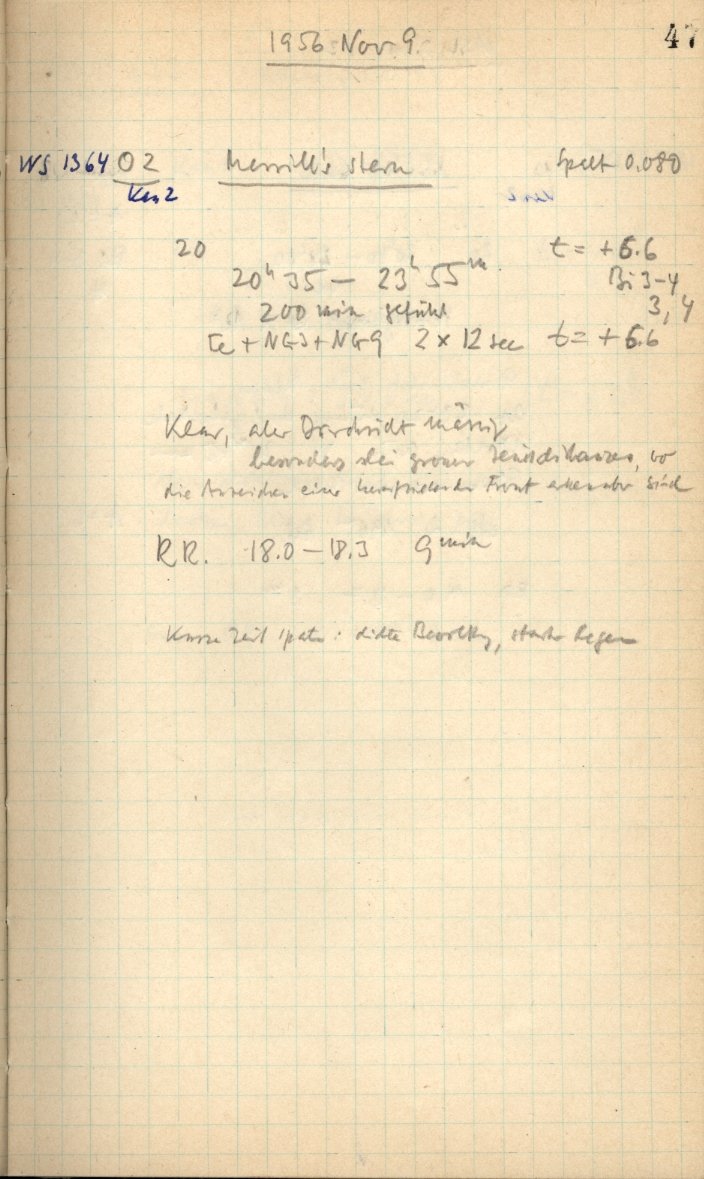 1956 Nov. 9.
47
WS 1364 O2 Merrill's Stern Spalt 0.080
Ken2
20 t = +6.6
20ʰ 35 — 23ʰ 55ᵐ Bi 3-4
200 min geführt 3, 4
Fe + NG3 + NG9 2 × 12 sec t = +6.6
Klar, aber Durchsicht mässig
besonders bei grosser Zenitdistanzen, wo
die Anzeichen einer Front erkennbar sind
RR. 18.0 — 18.3 9ᵐⁱⁿ
Kurze Zeit später: dichte Bewölkg, starker Regen